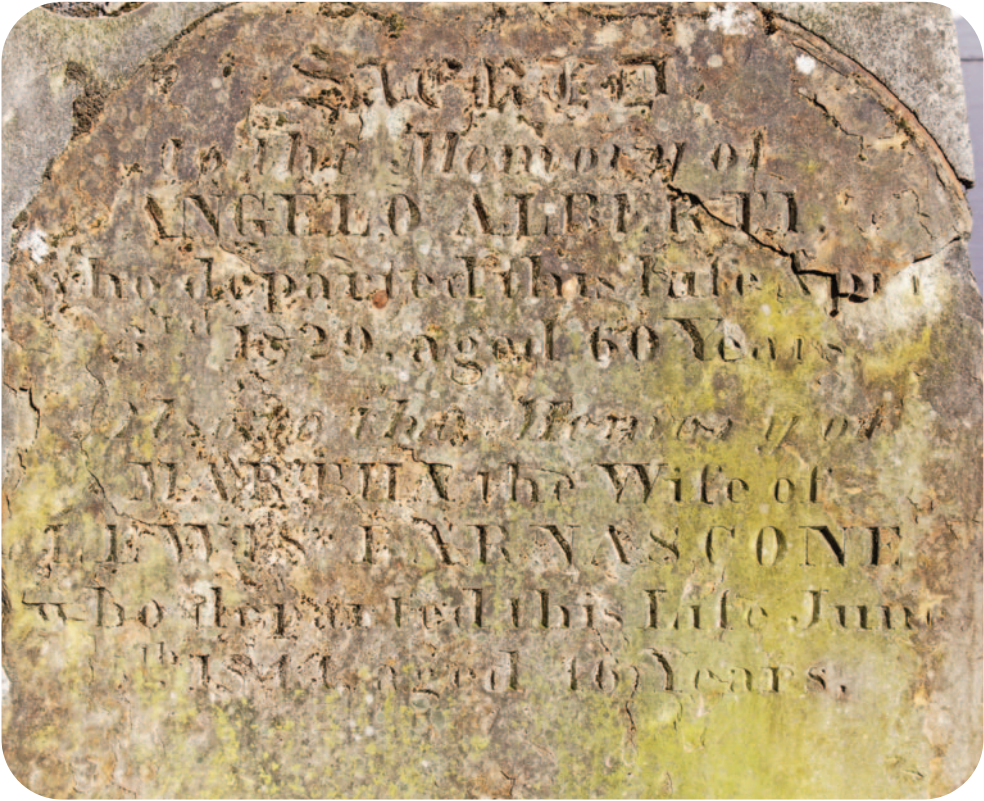 SACRED
to the Memory of
ANGELO ALBERTI.
who departed this Life April
3rd 1829, aged 60 Years
Also to the Memory of
MARTHA the Wife of
LEWIS FARNASCONE
who departed this Life June
aged Years.